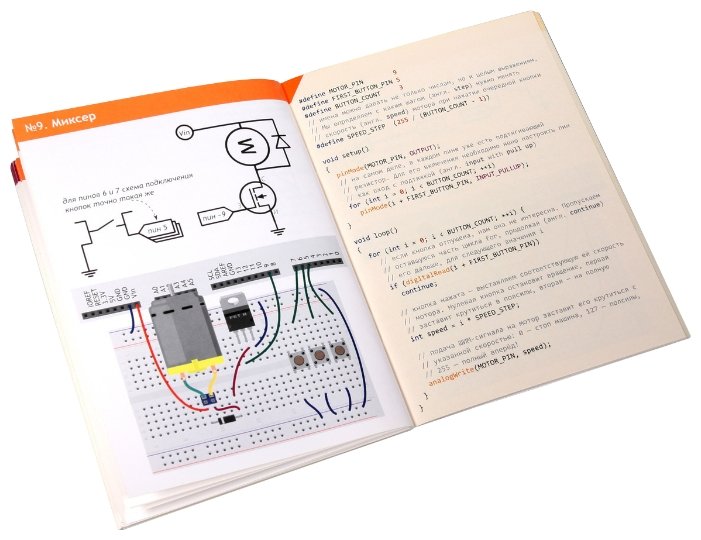 №9. Миксер
Vin
M
для пинов 6 и 7 схема подключения
кнопок точно такая же
пин 5
пин ~9
IOREF
RESET
3.3V
5V
GND
GND
Vin
A0
A1
A2
A3
A4
A5
SCL
SDA
AREF
GND
13
12
11
10
9
8
7
6
5
4
3
2
1
0
#define MOTOR_PIN 9
#define FIRST_BUTTON_PIN 5
#define BUTTON_COUNT 3
// имена можно давать не только числам, но и целым выражениям.
// Мы определяем с каким шагом (англ. step) нужно менять
// скорость (англ. speed) мотора при нажатии очередной кнопки
#define SPEED_STEP (255 / (BUTTON_COUNT - 1))
void setup()
{
pinMode(MOTOR_PIN, OUTPUT);
// на самом деле, в каждом пине уже есть подтягивающий
// резистор. Для его включения необходимо явно настроить пин
// как вход с подтяжкой (англ. input with pull up)
for (int i = 0; i < BUTTON_COUNT; ++i)
pinMode(i + FIRST_BUTTON_PIN, INPUT_PULLUP);
}
void loop()
{
for (int i = 0; i < BUTTON_COUNT; ++i) {
// если кнопка отпущена, нам она не интересна. Пропускаем
// оставшуюся часть цикла for, продолжая (англ. continue)
// его дальше, для следующего значения i
if (digitalRead(i + FIRST_BUTTON_PIN))
continue;
// кнопка нажата — выставляем соответствующую ей скорость
// мотора. Нулевая кнопка остановит вращение, первая
// заставит крутиться в полсилы, вторая — на полную
int speed = i * SPEED_STEP;
// подача ШИМ-сигнала на мотор заставит его крутиться с
// указанной скоростью: 0 — стоп машина, 127 — полсилы,
// 255 — полный вперёд!
analogWrite(MOTOR_PIN, speed);
}
}